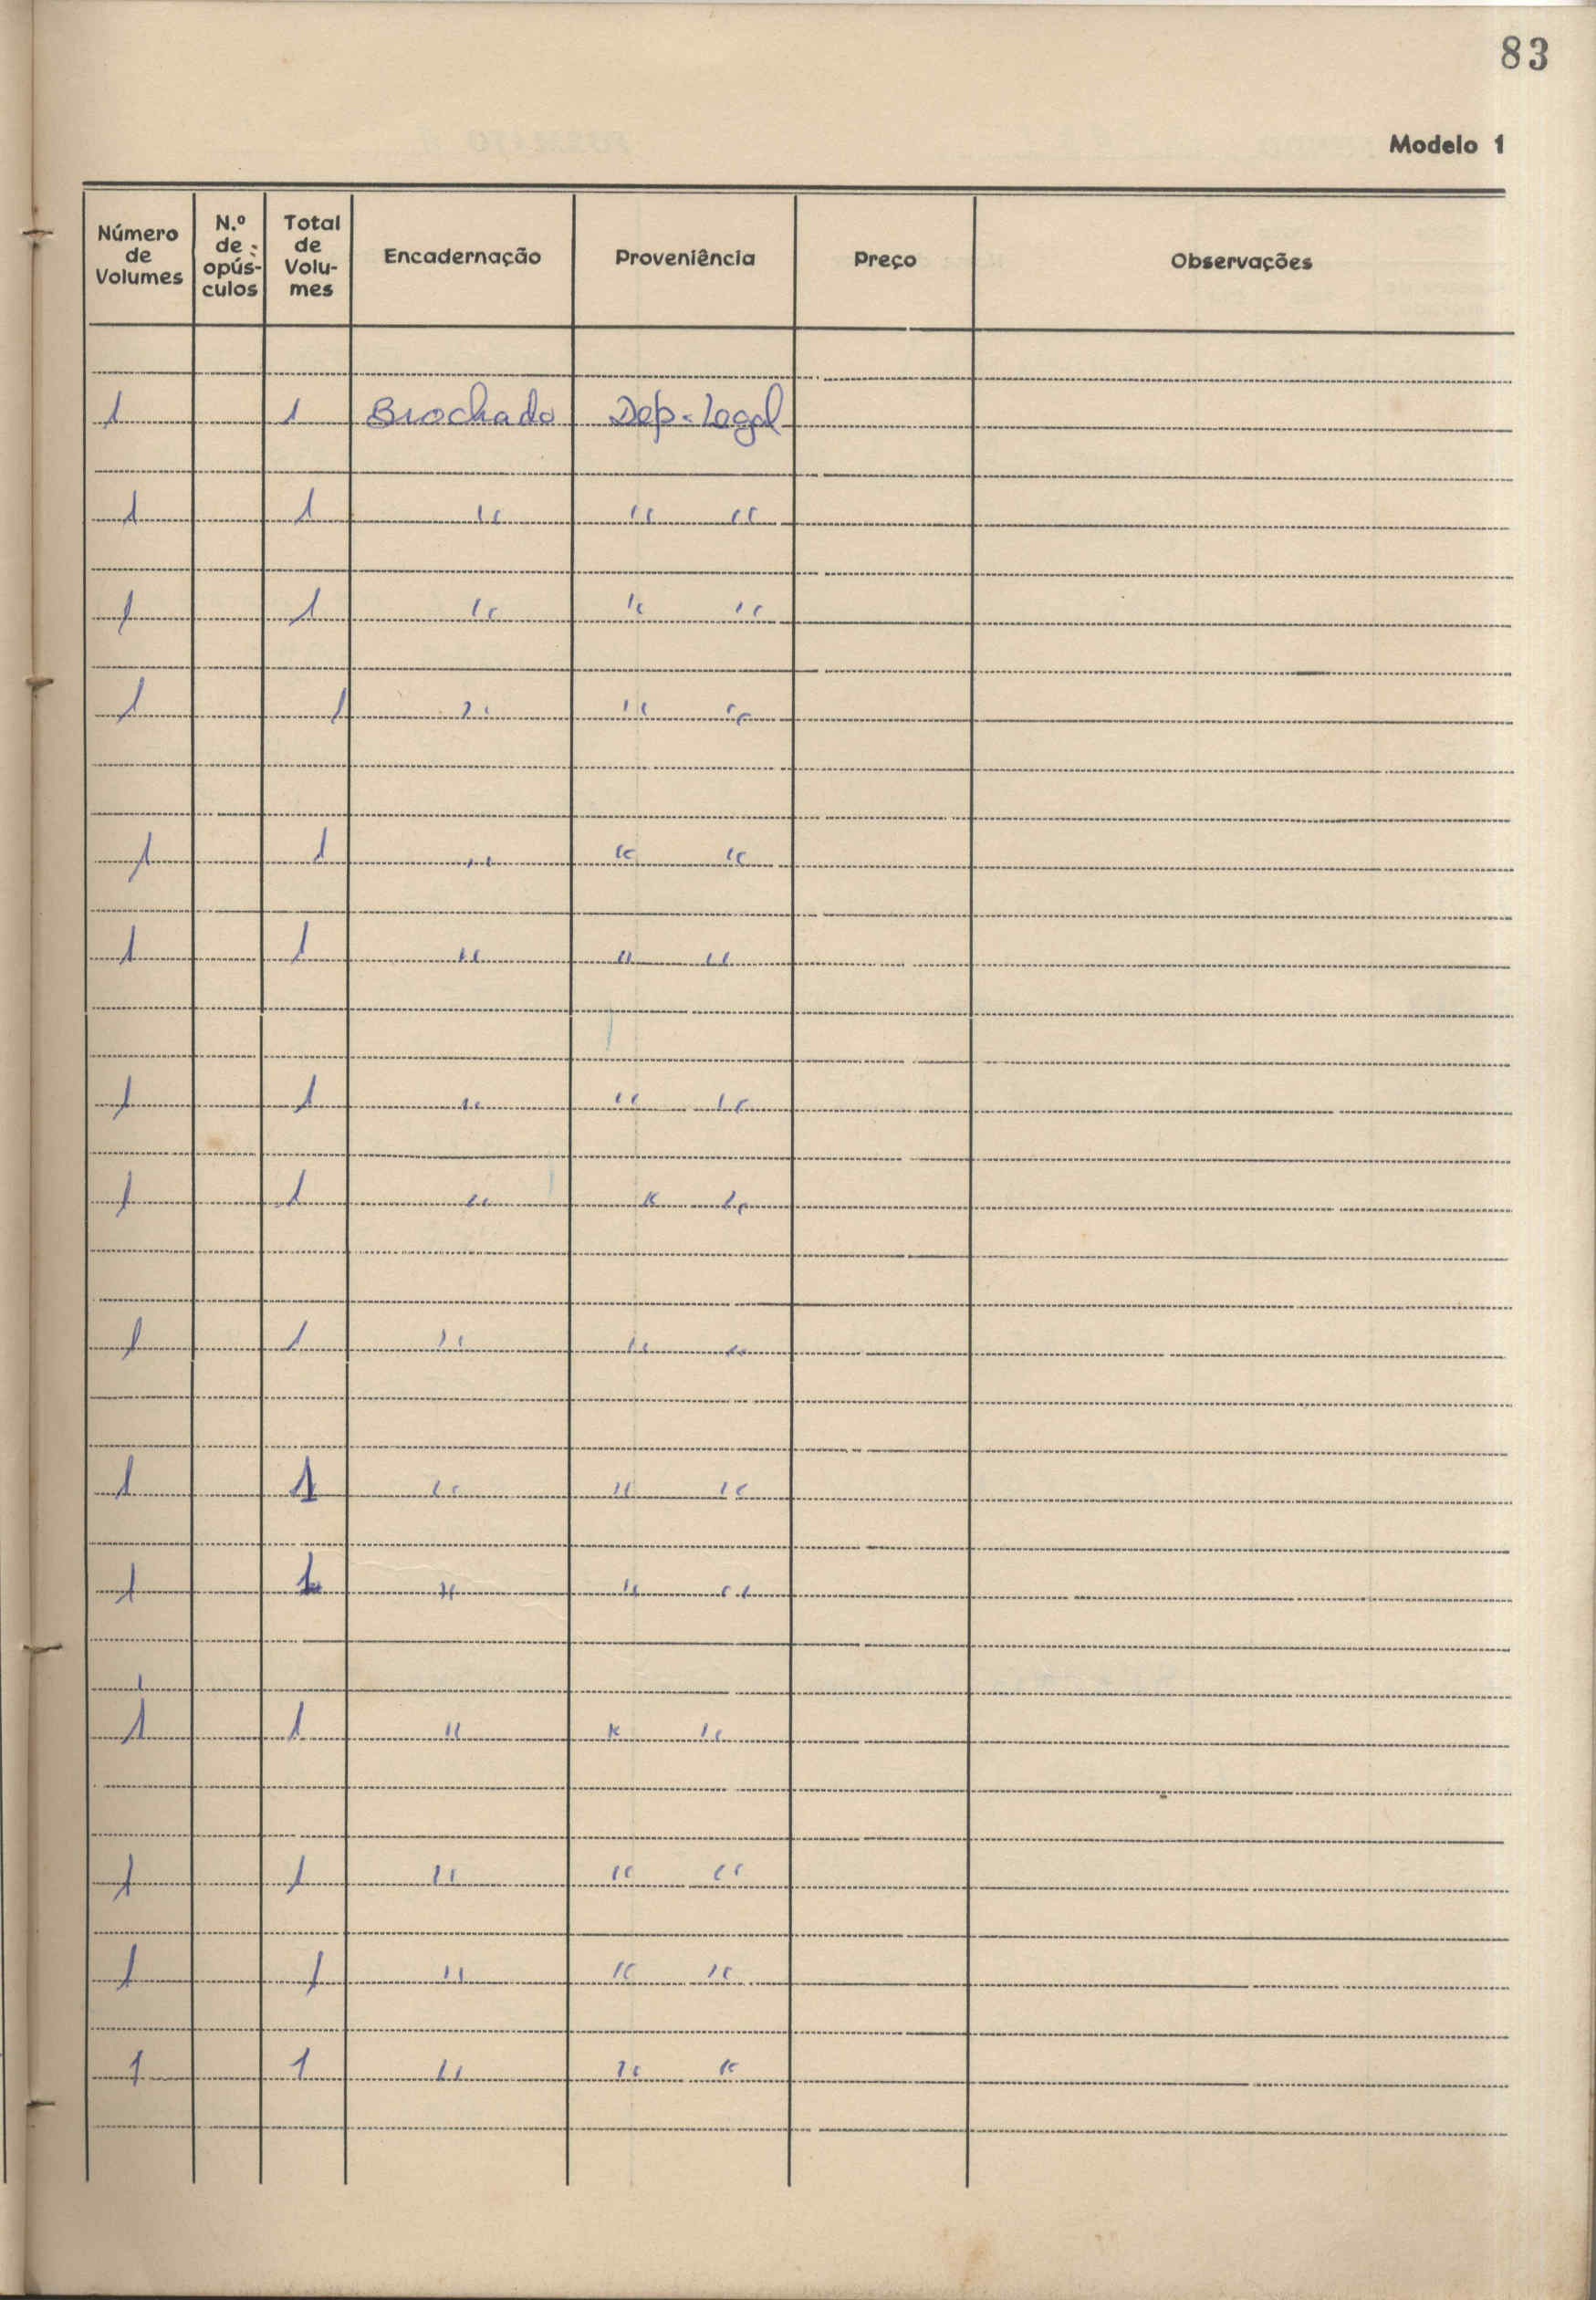 83
Modelo 1
Número de Volumes | N.º de opús-culos | Total de Volu-mes | Encadernação | Proveniência | Preço | Observações
1 1 Brochado Dep. Legal
1 1 " " "
1 1 " " "
1 1 " " "
1 1 " " "
1 1 " " "
1 1 " " "
1 1 " " "
1 1 " " "
1 1 " " "
1 1 " " "
1 1 " " "
1 1 " " "
1 1 " " "
1 1 " " "